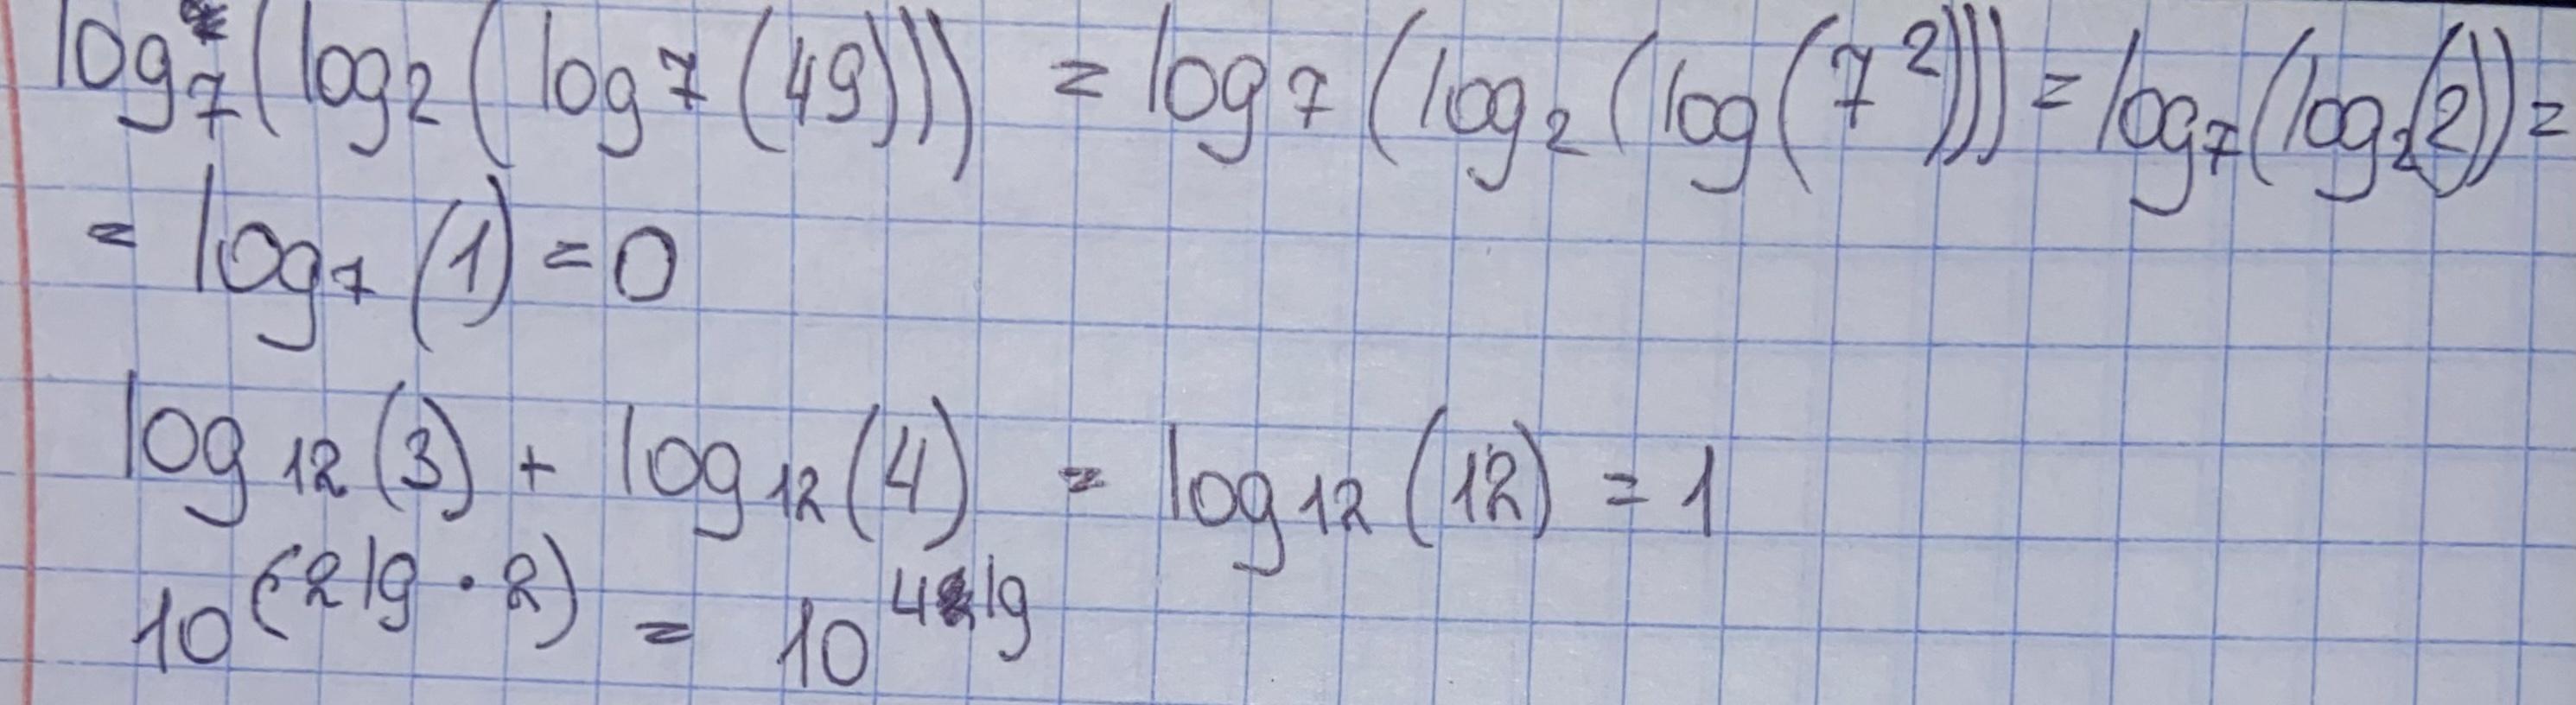 log₇(log₂(log7(49))) = log₇(log₂(log(7²))) = log₇(log₂(2)) =
= log₇(1) = 0
log₁₂(3) + log₁₂(4) = log₁₂(12) = 1
10^(2lg·2) = 10^4lg